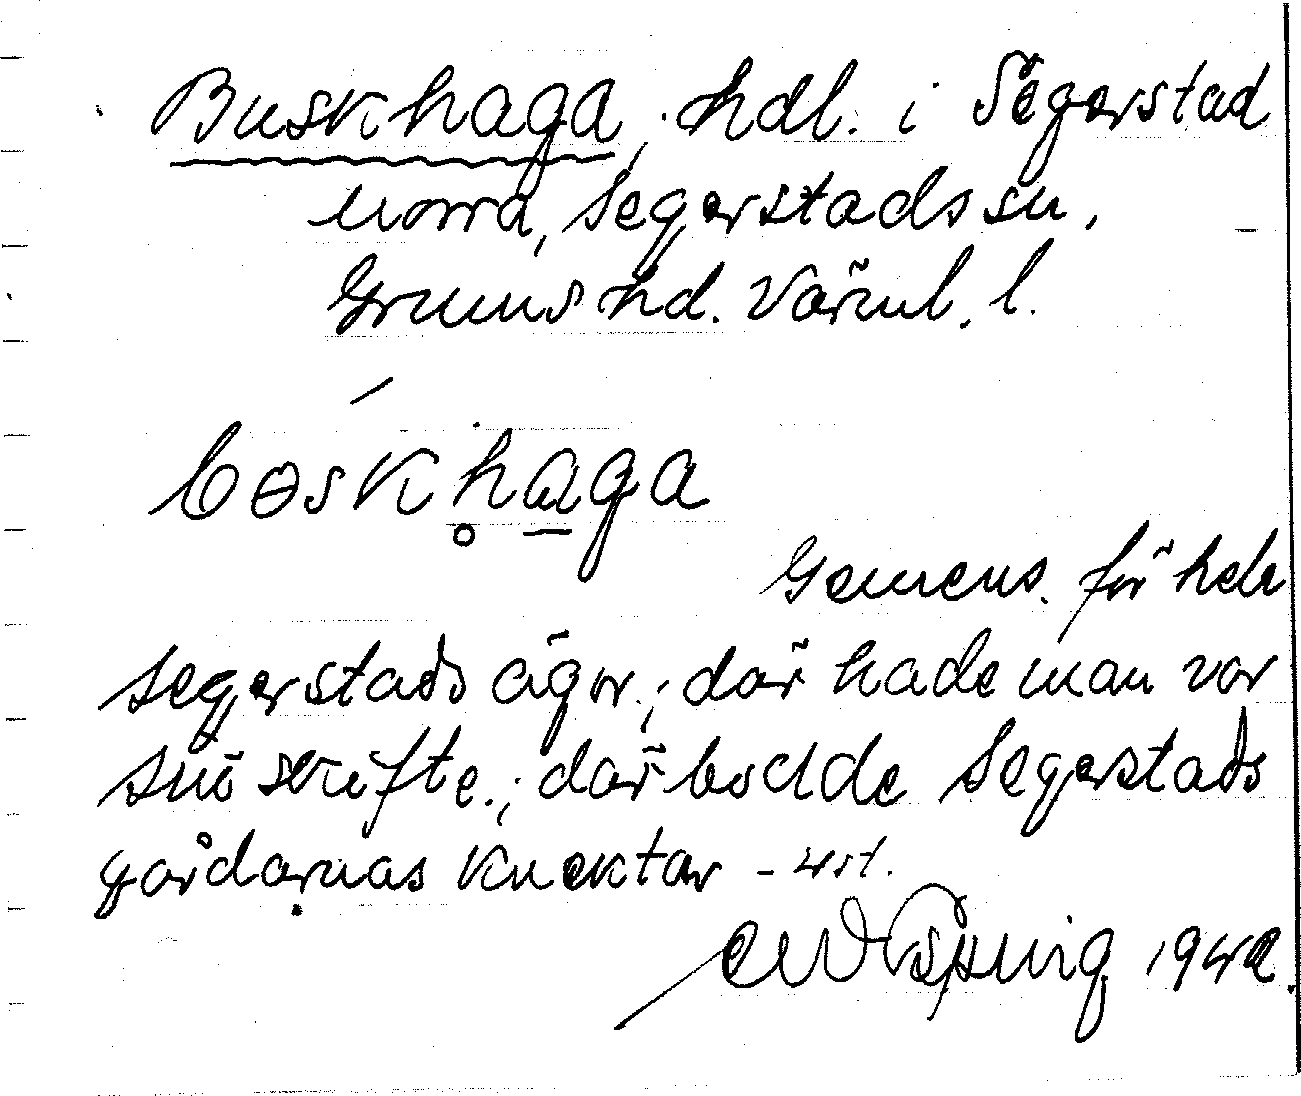 Buskhaga, hdl. i Segerstad
norra, Segerstads sn,
Grums hd. Värml. l.
bɵskhaga
Gemens. för hela
Segerstads ägor; där hade man vor
där bodde Segerstads
gårdarnas knektar –
1942.